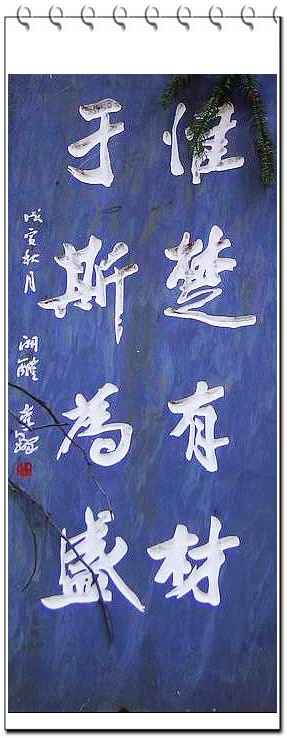 惟楚有材
于斯為盛
戊寅秋月
湖醮